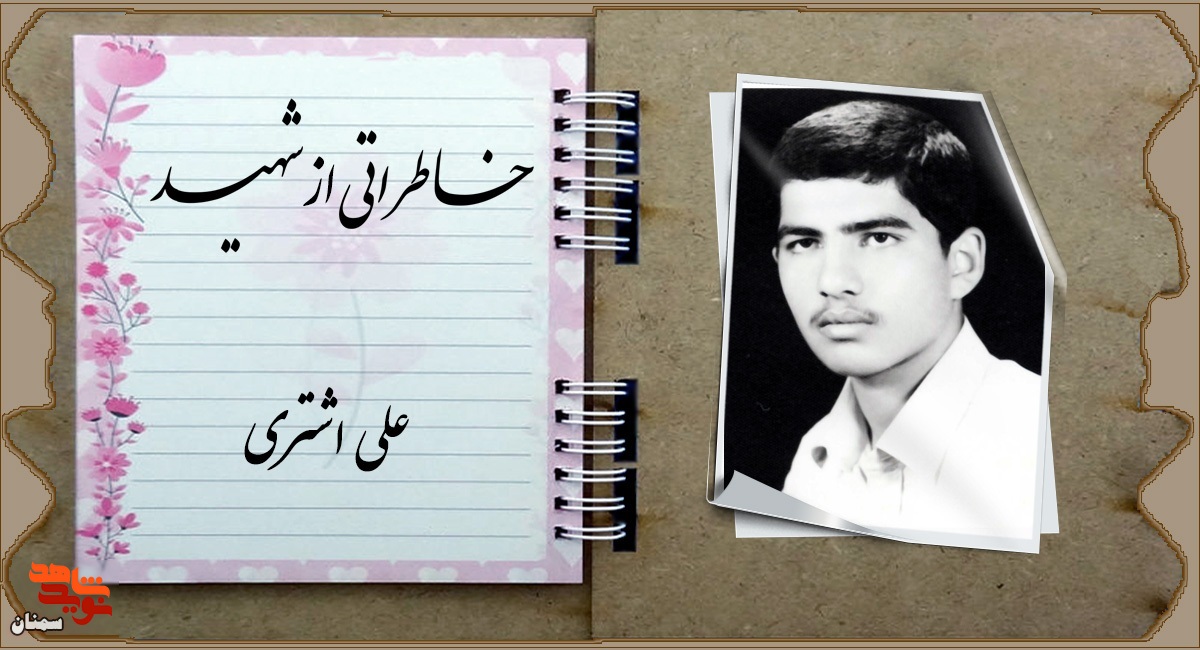 خاطراتی از شهید
علی اشتری
نوید شاهد
سمنان